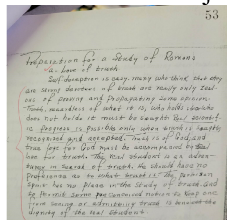 53
Preparation for a Study of Romans
a. Love of truth
Self deception is easy. many who think they
are strong devotees of truth are really only zeal-
ous of proving and propagating some opinion.
Truth, regardless of what it is, who holds it or who
does not hold it must be sought.
is Progress is possible only when truth is
recognized and accepted.
true for God must be accompanied by
love for truth. The real student is a adven-
turer in search of truth. He should have no
preference as to what truth is. The partisan
spirit has no place in the study of truth. God
by
from seeing or admitting truth is beneath the
dignity of the real student